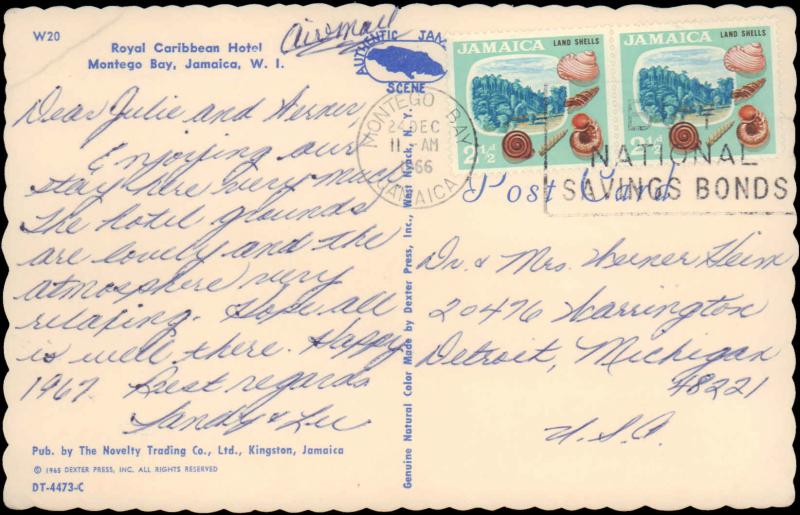 W20
Royal Caribbean Hotel
Montego Bay, Jamaica, W. I.
Airmail
AUTHENTIC JAM
SCENE
Dear Julie and Werner,
Enjoying our
stay here very much
The hotel grounds
are lovely and the
atmosphere very
relaxing. Hope all
is well there. Happy
1967. Best regards
Sandy & Lee
Pub. by The Novelty Trading Co., Ltd., Kingston, Jamaica
© 1965 DEXTER PRESS, INC. ALL RIGHTS RESERVED
DT-4473-C
Genuine Natural Color Made by Dexter Press, Inc., West Nyack, N. Y.
JAMAICA LAND SHELLS
2½
JAMAICA LAND SHELLS
2½
MONTEGO BAY
24 DEC
11 AM
1966
JAMAICA
NATIONAL
SAVINGS BONDS
Post Card
Dr. & Mrs. Werner Heim
20476 Warrington
Detroit, Michigan
48221
U.S.A.